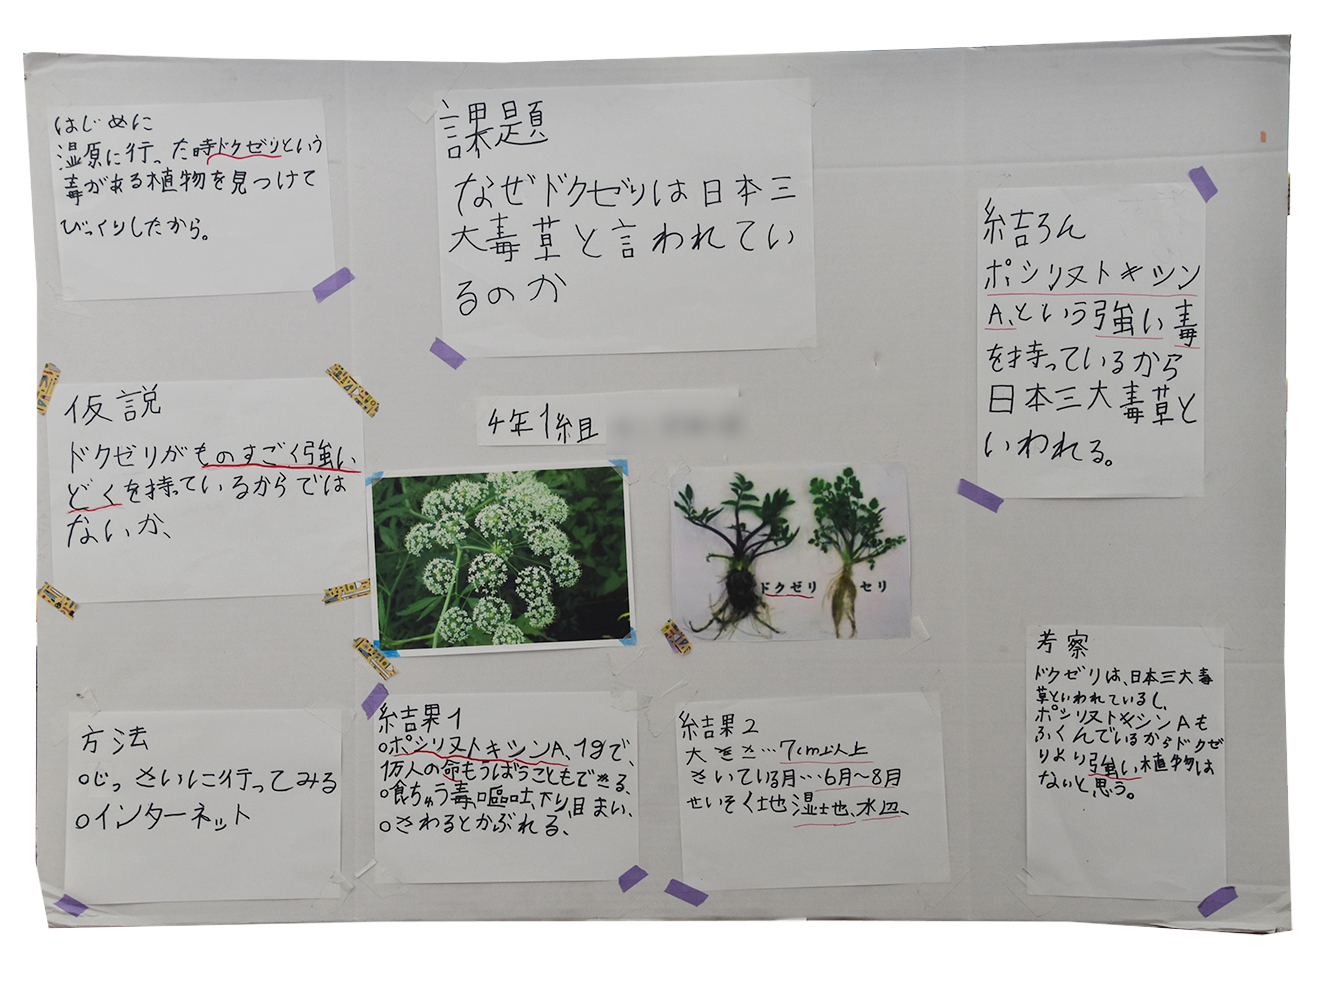 はじめに
湿原に行った時ドクゼリという
毒がある植物を見つけて
びっくりしたから。
課題
なぜドクゼリは日本三
大毒草と言われてい
るのか
仮説
ドクゼリがものすごく強い
どくを持っているからでは
ないか、
4年1組
ドクゼリ
セリ
方法
○じっさいに行ってみる
○インターネット
結果1
○ポシリヌトキシンA、1gで、
1万人の命もうばうこともできる、
○食ちゅう毒、嘔吐、下り、目まい、
○さわるとかぶれる、
結果2
大きさ…7cm以上
さいている月…6月〜8月
せいそく地 湿地、水辺、
結ろん
ポシリヌトキシン
A、という強い毒
を持っているから
日本三大毒草と
いわれる。
考察
ドクゼリは、日本三大毒
草といわれているし、
ポシリヌトキシンAも
ふくんでいるからドクゼ
リより強い植物は
ないと思う。